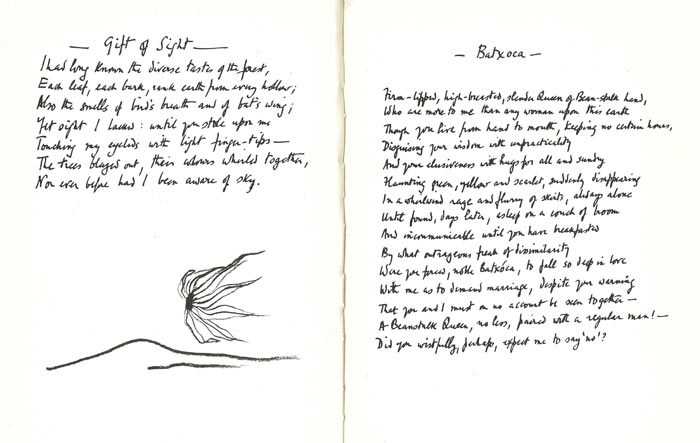 — Gift of Sight —
I had long known the diverse tastes of the forest,
Each leaf, each bark, rank earth from every hollow;
Also the smells of bird's breath and of bat's wing;
Yet sight I lacked: until you stole upon me
Touching my eyelids with light finger-tips—
The trees blazed out, their colours whirled together,
Nor ever before had I been aware of sky.
— Batxóca —
Firm-lipped, high-breasted, slender Queen of Bean-stalk land,
Who are more to me than any woman upon this earth
Though you live from hand to mouth, keeping no certain hours,
Disguising your wisdom with unpracticality
And your elusiveness with hugs for all and sundry
Flaunting green, yellow and scarlet, suddenly disappearing
In a whirlwind rage and flurry of skirts, always alone
Until found, days later, asleep on a couch of broom
And incommunicable until you have breakfasted
By what outrageous freak of dissimilarity
Were you forced, noble Batxóca, to fall so deep in love
With me as to demand marriage, despite your warning
That you and I must on no account be seen together—
A Beanstalk Queen, no less, paired with a regular man!—
Did you wistfully, perhaps, expect me to say 'no'?